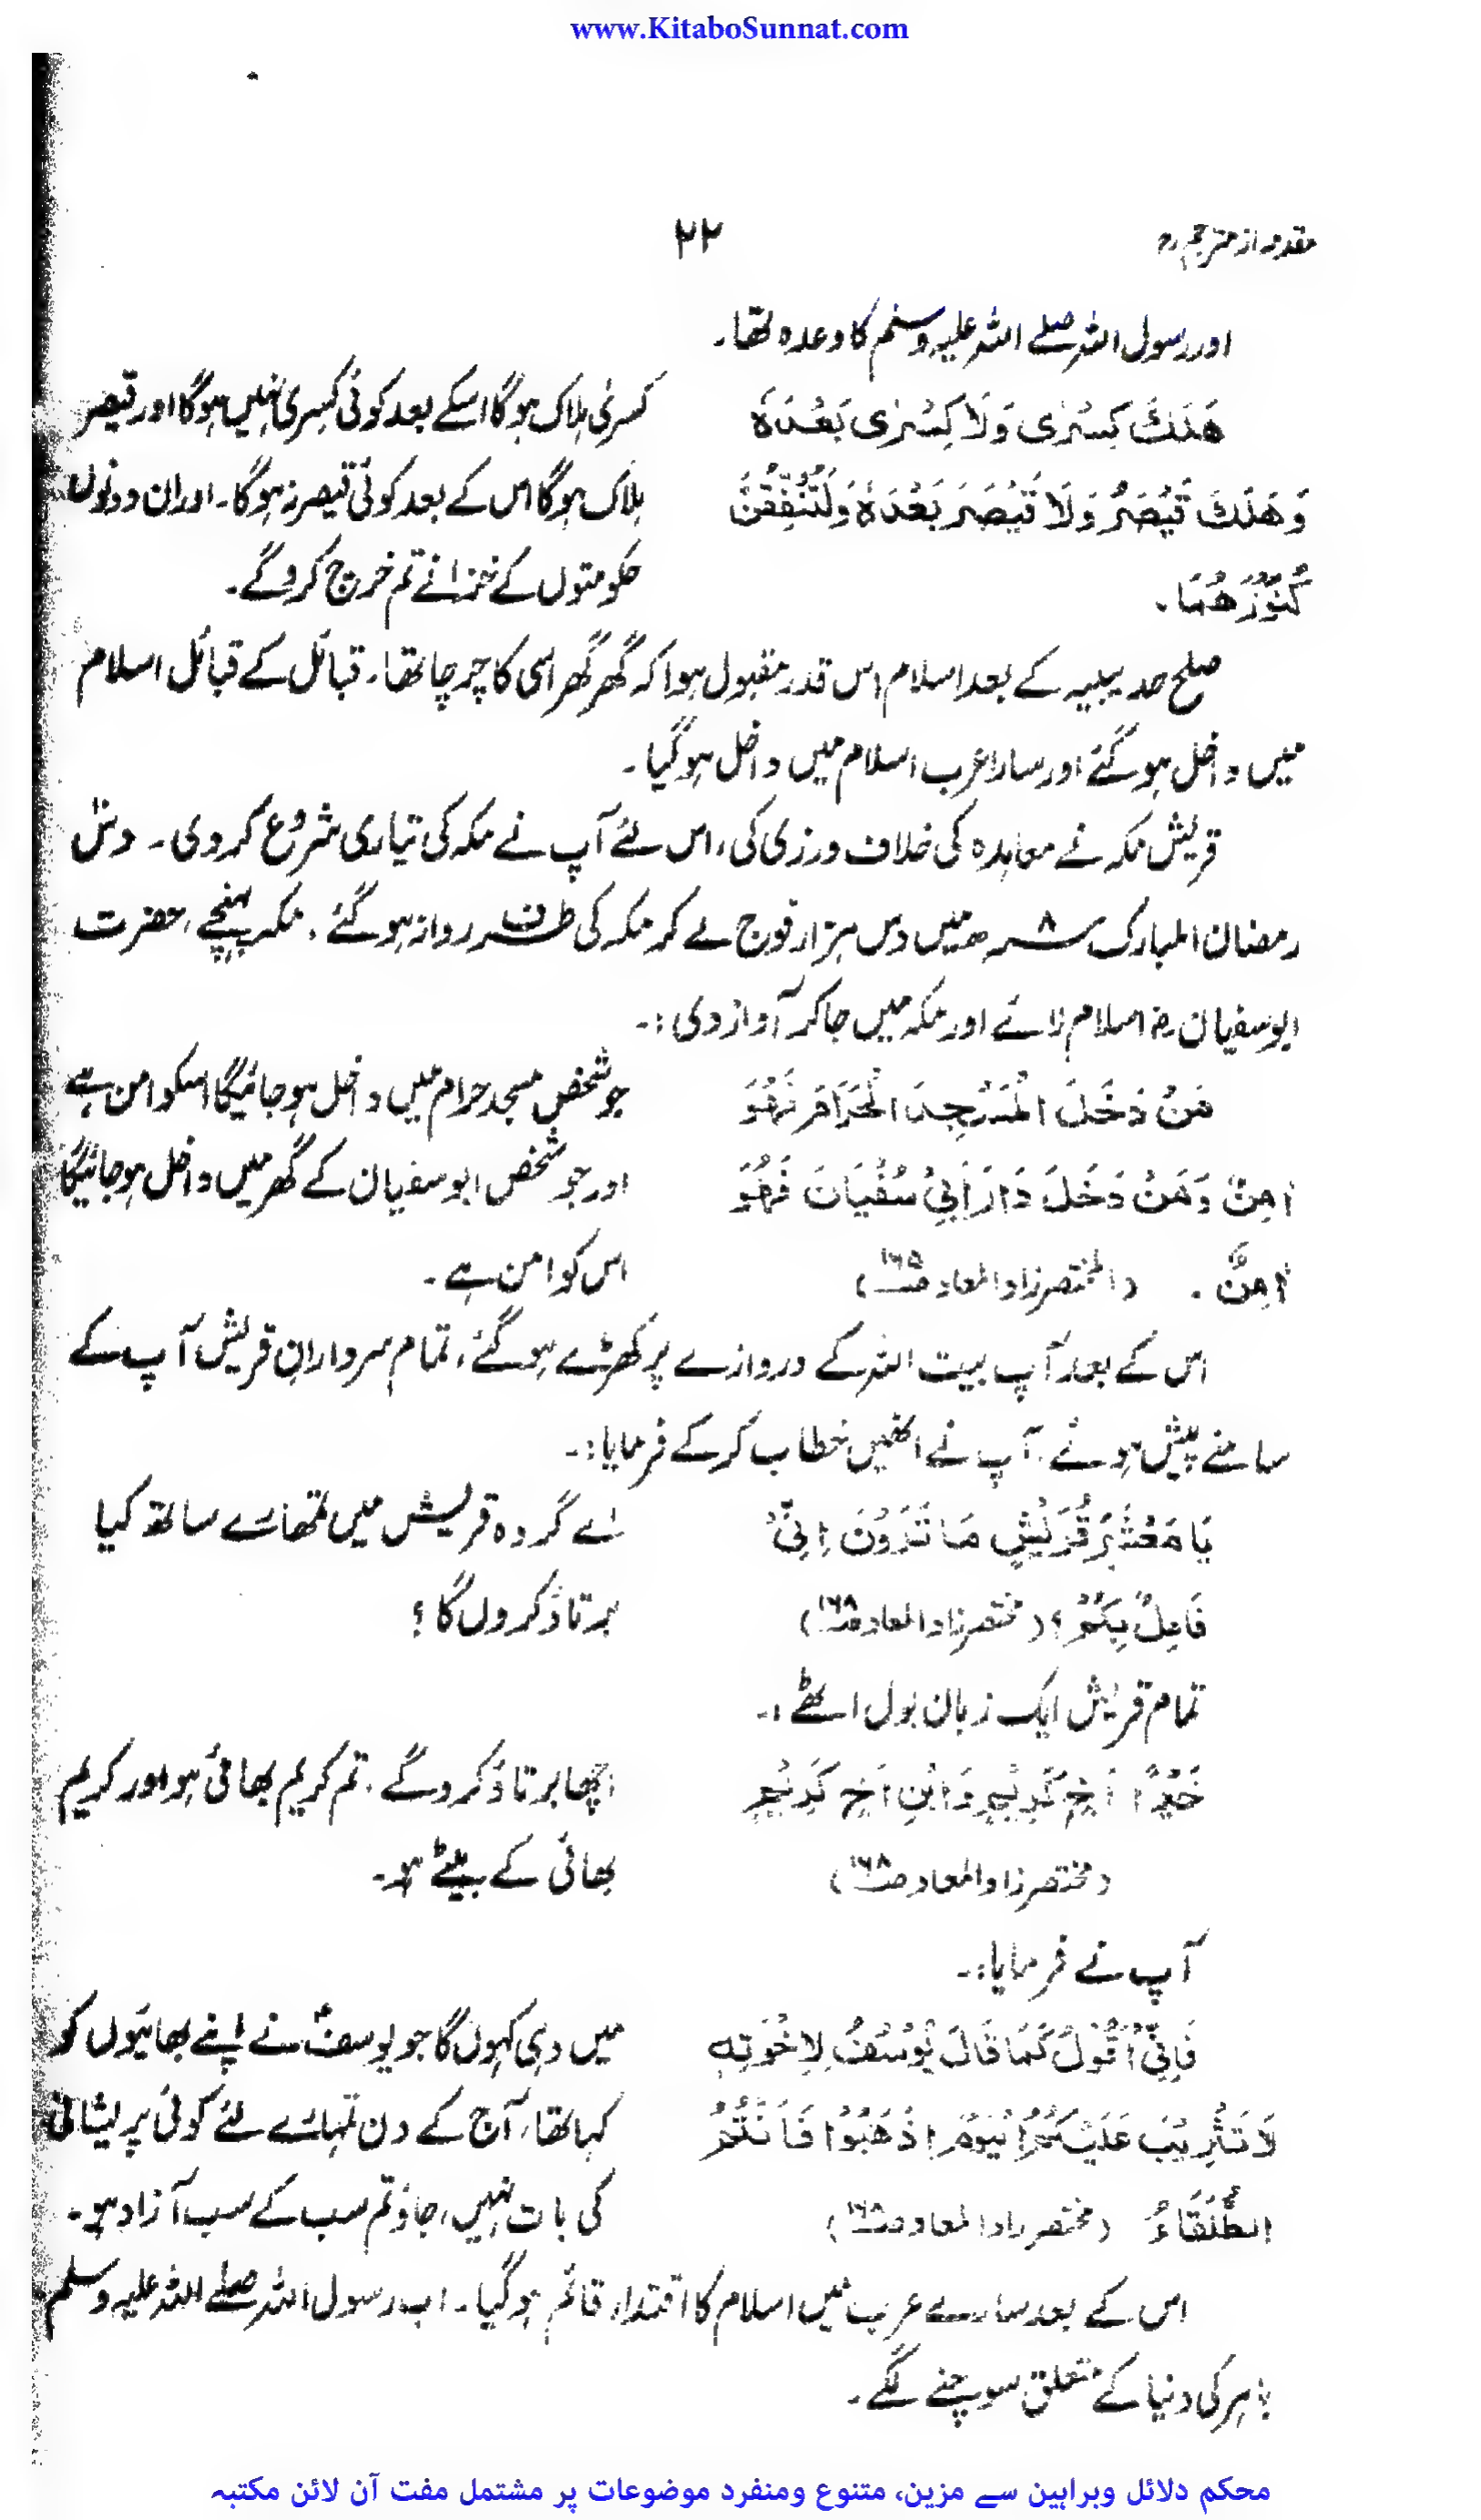 www.KitaboSunnat.com
مقدمہ از مترجم رح
۲۲
اور رسول اللہ صلے اللہ علیہ وسلم کا وعدہ تھا۔
هَلَكَ كِسْرٰى وَلَا كِسْرٰى بَعْدَهٗ
وَهَلَكَ قَيْصَرُ وَلَا قَيْصَرَ بَعْدَهٗ وَلَتُنْفِقُنَّ
كُنُوْزَهُمَا۔
کسریٰ ہلاک ہوگا اسکے بعد کوئی کسریٰ نہیں ہوگا اور قیصر
ہلاک ہوگا اس کے بعد کوئی قیصر نہ ہوگا۔ اور ان دونوں
حکومتوں کے خزانے تم خرچ کروگے۔
صلح حدیبیہ کے بعد اسلام اس قدر مقبول ہوا کہ گھر گھر اسی کا چرچا تھا۔ قبائل کے قبائل اسلام
میں داخل ہوگئے اور سارا عرب اسلام میں داخل ہوگیا۔
قریش مکہ نے معاہدہ کی خلاف ورزی کی، اس لئے آپ نے مکہ کی تیاری شروع کردی۔ دس
رمضان المبارک ۸ھ میں دس ہزار فوج لے کر مکہ کی طرف روانہ ہوگئے۔ مکہ پہنچے، حضرت
ابوسفیان رض اسلام لائے اور مکہ میں جاکر آواز دی:۔
مَنْ دَخَلَ الْمَسْجِدَ الْحَرَامَ فَهُوَ
اٰمِنٌ وَمَنْ دَخَلَ دَارَ اَبِيْ سُفْيَانَ فَهُوَ
اٰمِنٌ۔ (المختصر زاد المعاد ص۱۶۵)
جو شخص مسجد حرام میں داخل ہوجائیگا اسکو امن ہے
اور جو شخص ابوسفیان کے گھر میں داخل ہوجائیگا
اس کو امن ہے۔
اس کے بعد آپ بیت اللہ کے دروازے پر کھڑے ہوگئے، تمام سردارانِ قریش آپ کے
سامنے پیش ہوئے، آپ نے انھیں خطاب کرکے فرمایا:۔
يَا مَعْشَرَ قُرَيْشٍ مَا تَرَوْنَ اِنِّيْ
فَاعِلٌ بِكُمْ؟ (مختصر زاد المعاد ص۱۶۸)
اے گروہ قریش میں تمھارے ساتھ کیا
برتاؤ کروں گا؟
تمام قریش ایک زبان بول اٹھے:۔
خَيْرًا اَخٍ كَرِيْمٍ وَابْنِ اَخٍ كَرِيْمٍ
(مختصر زاد المعاد ص۱۶۸)
اچھا برتاؤ کروگے۔ تم کریم بھائی ہو اور کریم
بھائی کے بیٹے ہو۔
آپ نے فرمایا:۔
فَاِنِّيْ اَقُوْلُ كَمَا قَالَ يُوْسُفُ لِاِخْوَتِهٖ
لَا تَثْرِيْبَ عَلَيْكُمُ الْيَوْمَ اِذْهَبُوْا فَاَنْتُمُ
الطُّلَقَاءُ (مختصر زاد المعاد ص۱۶۸)
میں وہی کہوں گا جو یوسفؑ نے اپنے بھائیوں کو
کہا تھا، آج کے دن تمہارے لئے کوئی پریشانی
کی بات نہیں، جاؤ تم سب کے سب آزاد ہو۔
اس کے بعد سارے عرب میں اسلام کا اقتدار قائم ہوگیا۔ اب رسول اللہ صلے اللہ علیہ وسلم
باہر کی دنیا کے متعلق سوچنے لگے۔
محکم دلائل وبراہین سے مزین، متنوع ومنفرد موضوعات پر مشتمل مفت آن لائن مکتبہ